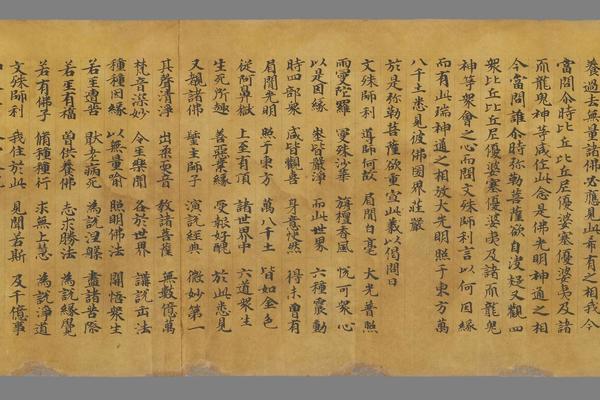 養過去無量諸佛必應見此希有之相我今
當問尒時比丘比丘尼優婆塞優婆夷及諸
𠀑龍鬼神等咸作此念是佛光明神通之相
今當問誰尒時弥勒菩薩欲自決疑又觀四
衆比丘比丘尼優婆塞優婆夷及諸𠀑龍鬼
神等衆會之心而問文殊師利言以何因緣
而有此瑞神通之相放大光明照于東方萬
八千土悉見彼佛國界莊嚴
於是弥勒菩薩欲重宣此義以偈問曰
文殊師利 導師何故 眉間白毫 大光普照
雨曼陀羅 曼殊沙華 栴檀香風 悅可衆心
以是因緣 埊皆嚴淨 而此世界 六種震動
時四部衆 咸皆歡喜 身意快然 得未曾有
眉間光明 照于東方 萬八千土 皆如金色
從阿鼻獄 上至有頂 諸世界中 六道衆生
生死所趣 善惡業緣 受報好醜 於此悉見
又覩諸佛 聖主師子 演說經典 微妙第一
其聲清淨 出柔耎音 教諸菩薩 無數億萬
梵音深妙 令𤯔樂聞 各於世界 講說𠙺法
種種因緣 以無量喻 照明佛法 開悟衆生
若𤯔遭苦 猒老病死 為說涅槃 盡諸苦際
若𤯔有福 曾供養佛 志求勝法 為說緣覺
若有佛子 脩種種行 求無上慧 為說淨道
文殊師利 我住於此 見聞若斯 及千億事